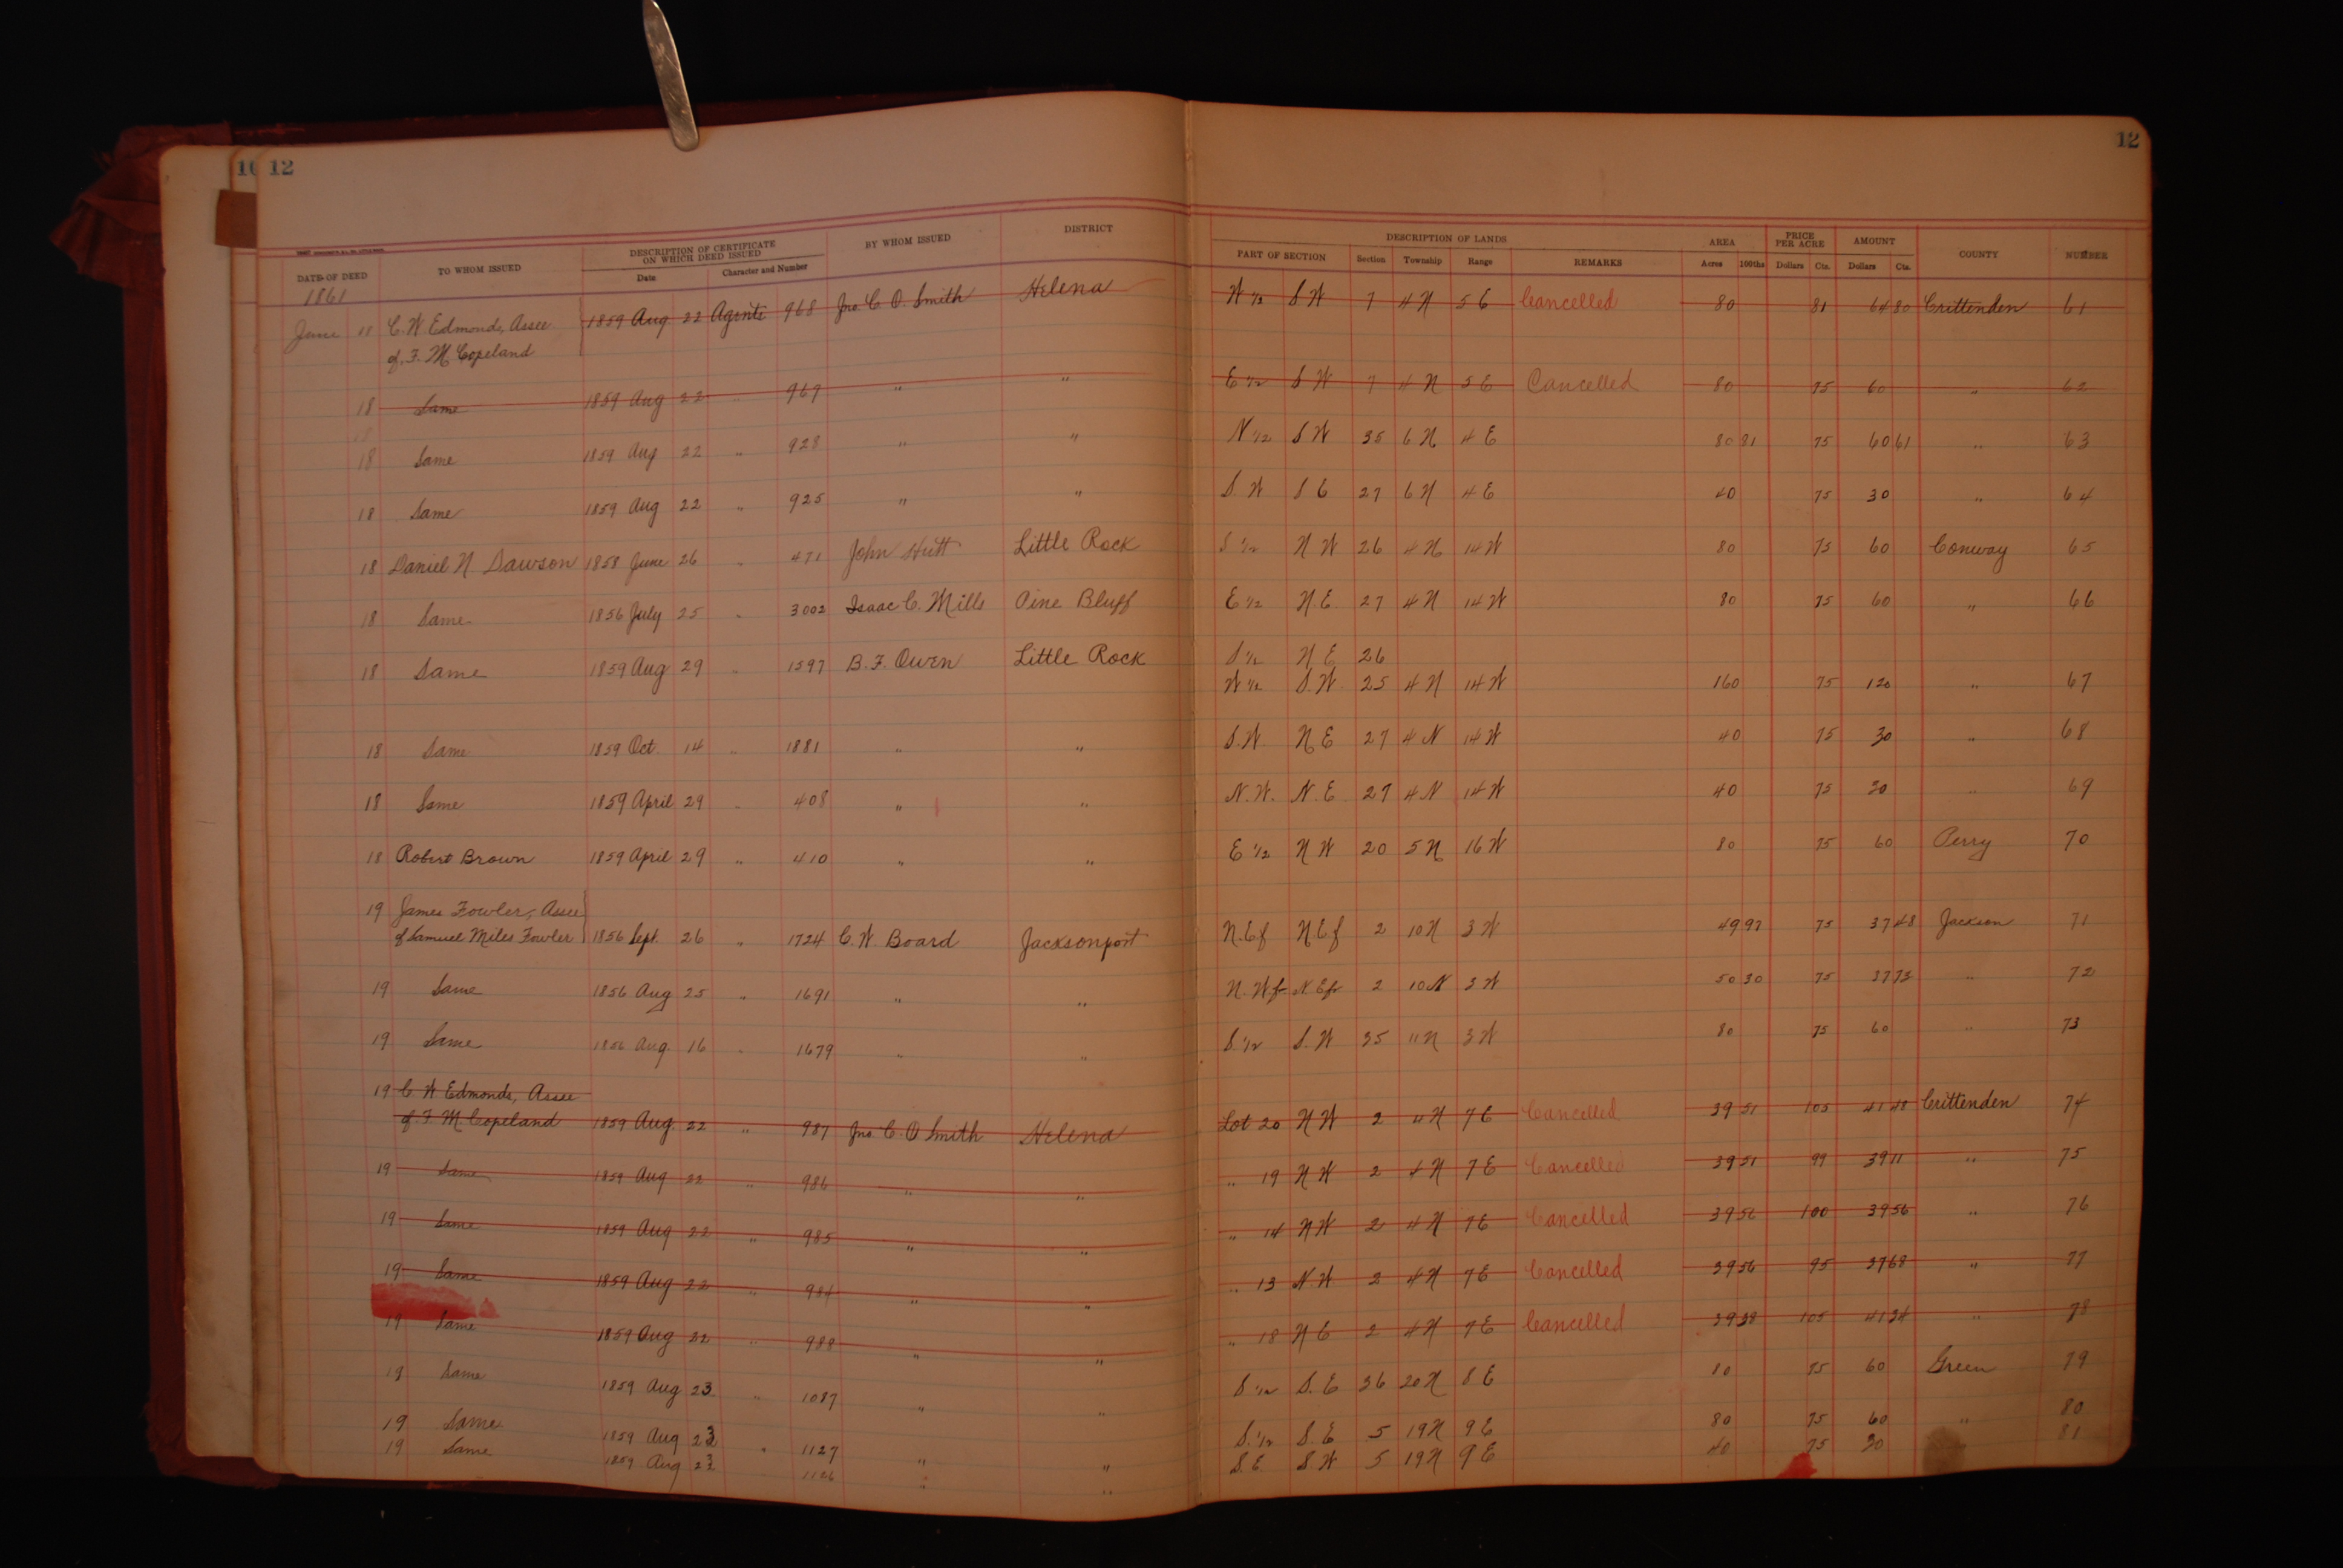 10 12 12
DATE OF DEED TO WHOM ISSUED DESCRIPTION OF CERTIFICATE ON WHICH DEED ISSUED BY WHOM ISSUED DISTRICT DESCRIPTION OF LANDS AREA PRICE PER ACRE AMOUNT COUNTY NUMBER
Date Character and Number PART OF SECTION Section Township Range REMARKS Acres 100ths Dollars Cts. Dollars Cts.
1861
June 18 C. W. Edmonds, Assee 1859 Aug 22 Agents 968 Jno. C. O. Smith Helena W 1/2 S W 7 4 N 5 E Cancelled 80 81 64 80 Crittenden 61
of F. M. Copeland
18 Same 1859 Aug 22 " 969 " " E 1/2 S W 7 4 N 5 E Cancelled 80 75 60 " 62
18 Same 1859 Aug 22 " 928 " " N 1/2 S W 35 6 N 4 E 80 81 75 60 61 " 63
18 Same 1859 Aug 22 " 925 " " S. W S E 27 6 N 4 E 40 75 30 " 64
18 Daniel N Dawson 1858 June 26 " 471 John Hutt Little Rock S 1/2 N W 26 4 N 14 W 80 75 60 Conway 65
18 Same 1856 July 25 " 3002 Isaac C. Mills Pine Bluff E 1/2 N. E. 27 4 N 14 W 80 75 60 " 66
18 Same 1859 Aug 29 " 1597 B. F. Owen Little Rock S 1/2 N E 26
W 1/2 S. W. 25 4 N 14 W 160 75 120 " 67
18 Same 1859 Oct. 14 " 1881 " " S. W. N E 27 4 N 14 W 40 75 30 " 68
18 Same 1859 April 29 " 408 " " N. W. N. E 27 4 N 14 W 40 75 30 " 69
18 Robert Brown 1859 April 29 " 410 " " E 1/2 N W 20 5 N 16 W 80 75 60 Perry 70
19 James Fowler, Assee
of Samuel Miles Fowler 1856 Sept. 26 " 1724 C. W. Board Jacksonport N. E f N E f 2 10 N 3 W 49 97 75 37 48 Jackson 71
19 Same 1856 Aug 25 " 1691 " " N. W fr N. E fr 2 10 N 3 W 50 30 75 37 73 " 72
19 Same 1856 Aug. 16 " 1679 " " S. 1/2 S. W 35 11 N 3 W 80 75 60 " 73
19 C W Edmonds, Assee
of F. M. Copeland 1859 Aug. 22 " 987 Jno. C. O Smith Helena Lot 20 N W 2 4 N 7 E Cancelled 39 51 105 41 48 Crittenden 74
19 Same 1859 Aug 22 " 986 " " " 19 N W 2 4 N 7 E Cancelled 39 51 99 39 11 " 75
19 Same 1859 Aug 22 " 985 " " " 14 N W 2 4 N 7 E Cancelled 39 56 100 39 56 " 76
19 Same 1859 Aug 22 " 984 " " " 13 N. W 2 4 N 7 E Cancelled 39 56 95 37 68 " 77
19 Same 1859 Aug 22 " 988 " " " 18 N E 2 4 N 7 E Cancelled 39 38 105 41 34 " 78
19 Same 1859 Aug 23 " 1087 " " S 1/2 S. E 36 20 N 8 E 80 75 60 Green 79
19 Same 1859 Aug 23 " 1127 " " S. 1/2 S. E 5 19 N 9 E 80 75 60 " 80
19 Same 1859 Aug 23 1126 " " S. E S W 5 19 N 9 E 40 75 30 81